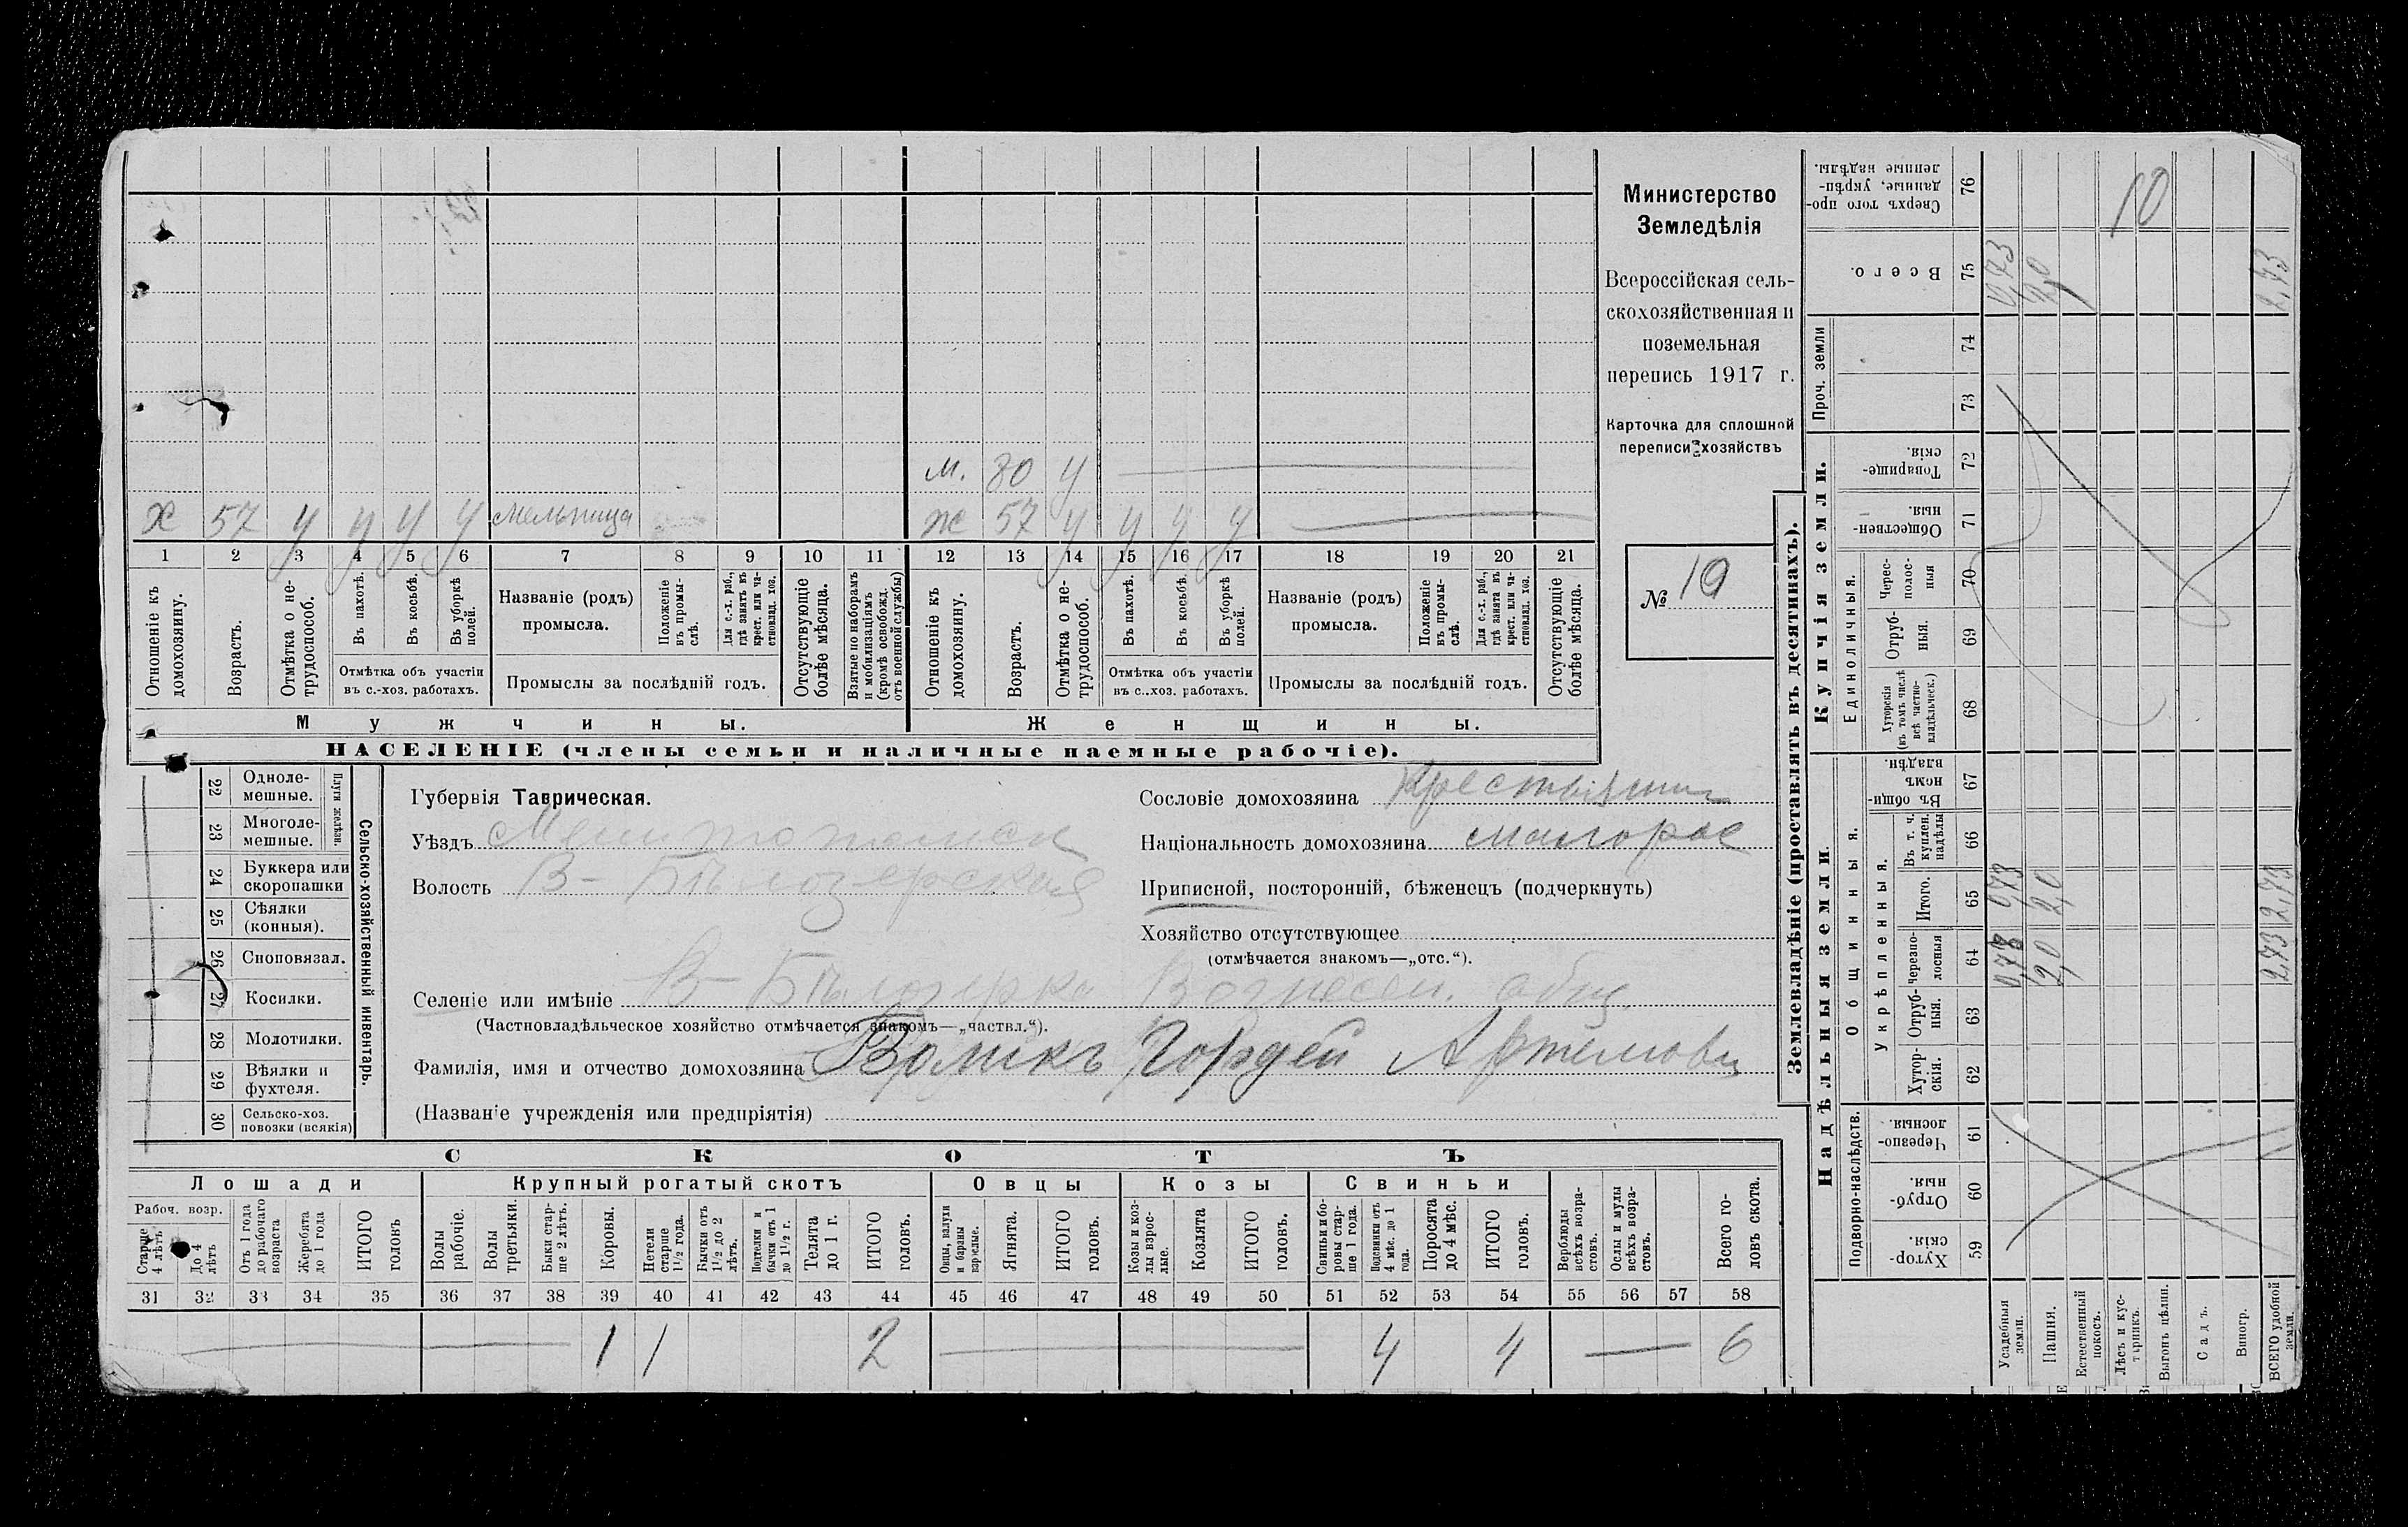 м. 80 у
х 57 у у у у мельница ж 57 у у у у
1 2 3 4 5 6 7 8 9 10 11 12 13 14 15 16 17 18 19 20 21
Отношеніе къ домохозяину.
Возрастъ.
Отмѣтка о не-
трудоспособ.
Въ пахотѣ.
Въ косьбѣ.
Въ уборкѣ
полей.
Отмѣтка объ участіи
въ с.-хоз. работахъ.
Названіе (родъ)
промысла.
Положеніе
въ промы-
слѣ.
Для с.-х. раб.,
гдѣ занятъ въ
крест. или ча-
стновлад. хоз.
Промыслы за послѣдній годъ.
Отсутствующіе
болѣе мѣсяца.
Взятые по наборамъ
и мобилизаціямъ
(кромѣ освобожд.
отъ военной службы)
Отношеніе къ
домохозяину.
Возрастъ.
Отмѣтка о не-
трудоспособ.
Въ пахотѣ.
Въ косьбѣ.
Въ уборкѣ
полей.
Отмѣтка объ участіи
въ с..хоз. работахъ.
Названіе (родъ)
промысла.
Положеніе
въ промы-
слѣ.
Для с.-х. раб.,
гдѣ занята въ
крест. или ча-
стновлад. хоз.
Промыслы за послѣдній годъ.
Отсутствующіе
болѣе мѣсяца.
Мужчины.
Женщины.
НАСЕЛЕНІЕ (члены семьи и наличные наемные рабочіе).
Министерство
Земледѣлія
Всероссійская сель-
скохозяйственная и
поземельная
перепись 1917 г.
Карточка для сплошной
переписи хозяйствъ
№ 19
22 Одноле-
мешные.
23 Многоле-
мешные.
Плуги желѣзн.
24 Буккера или
скоропашки
25 Сѣялки
(конныя).
26 Сноповязал.
27 Косилки.
28 Молотилки.
29 Вѣялки и
фухтеля.
30 Сельско-хоз.
повозки (всякія)
Сельско-хозяйственный инвентарь.
Губернія Таврическая.
Уѣздъ Мелитопольск
Волость В-Бѣлозерская
Селеніе или имѣніе В-Бѣлозерка Вознесен. общ.
(Частновладѣльческое хозяйство отмѣчается знакомъ—„частвл.“).
Фамилія, имя и отчество домохозяина Воликъ Гордей Артемовъ
(Названіе учрежденія или предпріятія)
Сословіе домохозяина Крестьянин
Національность домохозяина малорос
Приписной, посторонній, бѣженецъ (подчеркнуть)
Хозяйство отсутствующее
(отмѣчается знакомъ—„отс.“).
СКОТЪ
Лошади
Рабоч. возр.
Старше
4 лѣтъ
До 4
лѣтъ
Отъ 1 года
до рабочаго
возраста
Жеребята
до 1 года
ИТОГО
головъ
Крупный рогатый скотъ
Волы
рабочіе.
Волы
третьяки.
Быки стар-
ше 2 лѣтъ.
Коровы.
Нетели
старше
1½ года.
Бычки отъ
1½ до 2
лѣтъ.
Подтелки и
бычки отъ 1
до 1½ г.
Телята
до 1 г.
ИТОГО
головъ.
Овцы
Овцы, валухи
и бараны
взрослые.
Ягнята.
ИТОГО
головъ.
Козы
Козы и коз-
лы взрос-
лые.
Козлята
ИТОГО
головъ.
Свиньи
Свиньи и бо-
ровы стар-
ше 1 года.
Подсвинки отъ
4 мѣс. до 1
года.
Поросята
до 4 мѣс.
ИТОГО
головъ.
Верблюды
всѣхъ возра-
стовъ.
Ослы и мулы
всѣхъ возра-
стовъ.
Всего го-
ловъ скота.
31 32 33 34 35 36 37 38 39 40 41 42 43 44 45 46 47 48 49 50 51 52 53 54 55 56 57 58
1 1 2 4 4 6
Землевладѣніе (проставлять въ десятинахъ).
Надѣльныя земли
Подворно-наслѣдств.
Хутор-
скія.
59
Отруб-
ныя.
60
Черезпо-
лосныя.
61
Общинныя.
Укрѣпленныя.
Хутор-
скія.
62
Отруб-
ныя.
63
Черезпо-
лосныя
64
Итого.
65
Въ т. ч.
куплен.
надѣлы
66
Въ общи-
номъ
владѣн.
67
Купчія земли.
Единоличныя.
Хуторскія
(въ томъ числѣ
всѣ частно-
владѣльческ.)
68
Отруб-
ныя.
69
Черес-
полос-
ныя
70
Обществен-
ныя.
71
Товарище-
скія.
72
Проч. земли
73
74
Всего.
75
Сверхъ того про-
данные, укрѣп-
ленные надѣлы.
76
Усадебныя
земли.
0,73 0,73 0,73
Пашня.
2,0 2,0 2,0
Естественный
покосъ.
Лѣсъ и кус-
тарникъ.
10
Выгонъ цѣлин.
Садъ.
Виногр.
ВСЕГО удобной
земли.
2,73 2,73 2,73